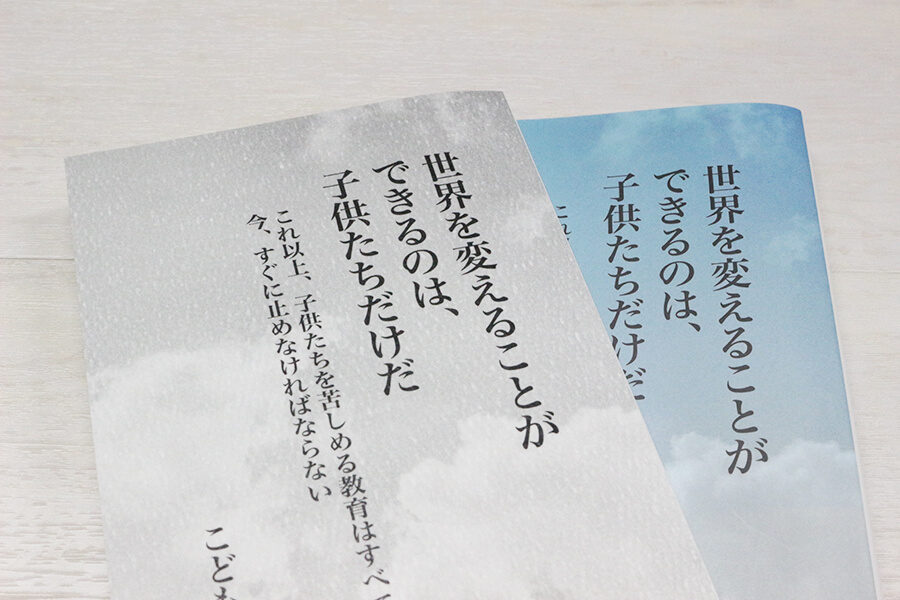 世界を変えることが
できるのは、
子供たちだけだ
これ以上、子供たちを苦しめる教育はすべ
今、すぐに止めなければならない
こども
世界を変えることが
できるのは、
子供たちだけだ